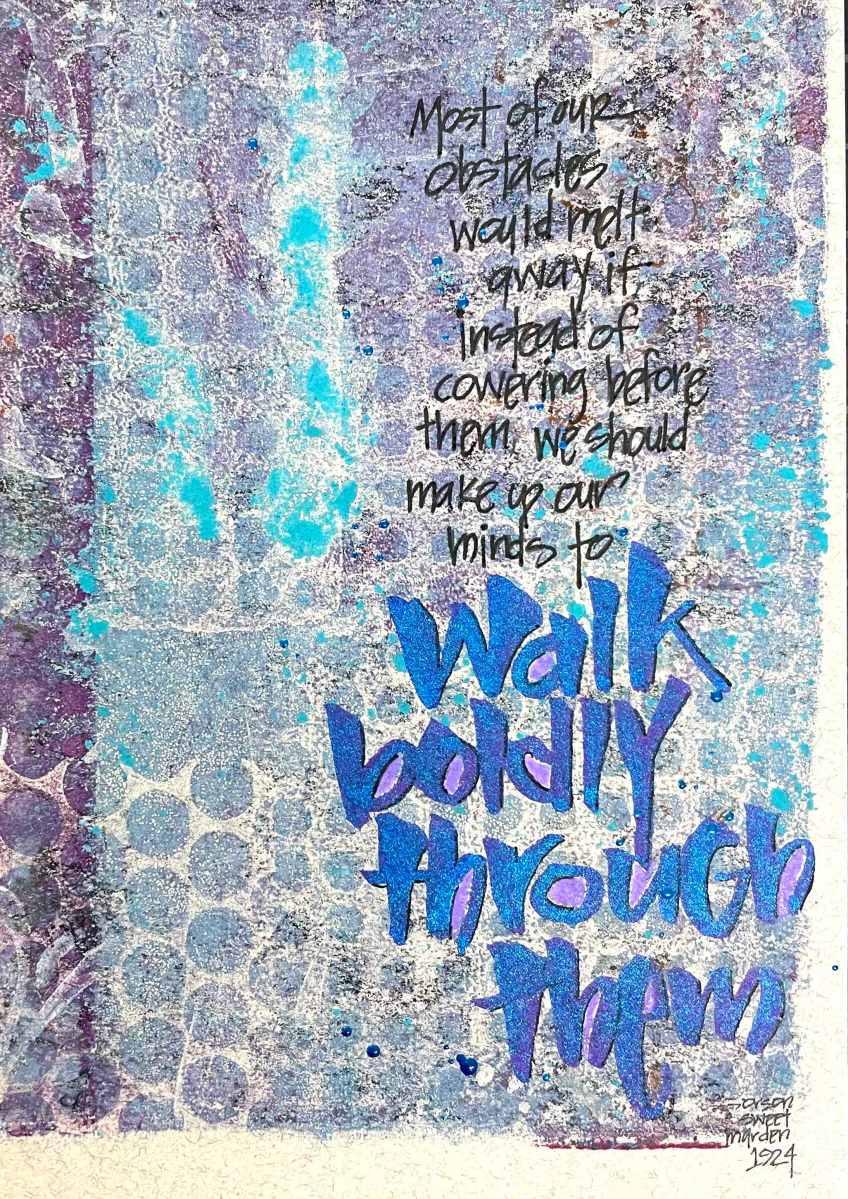 Most of our
obstacles
would melt
away if
instead of
cowering before
them, we should
make up our
minds to
walk
boldly
through
them
orson
sweet
marden
1924